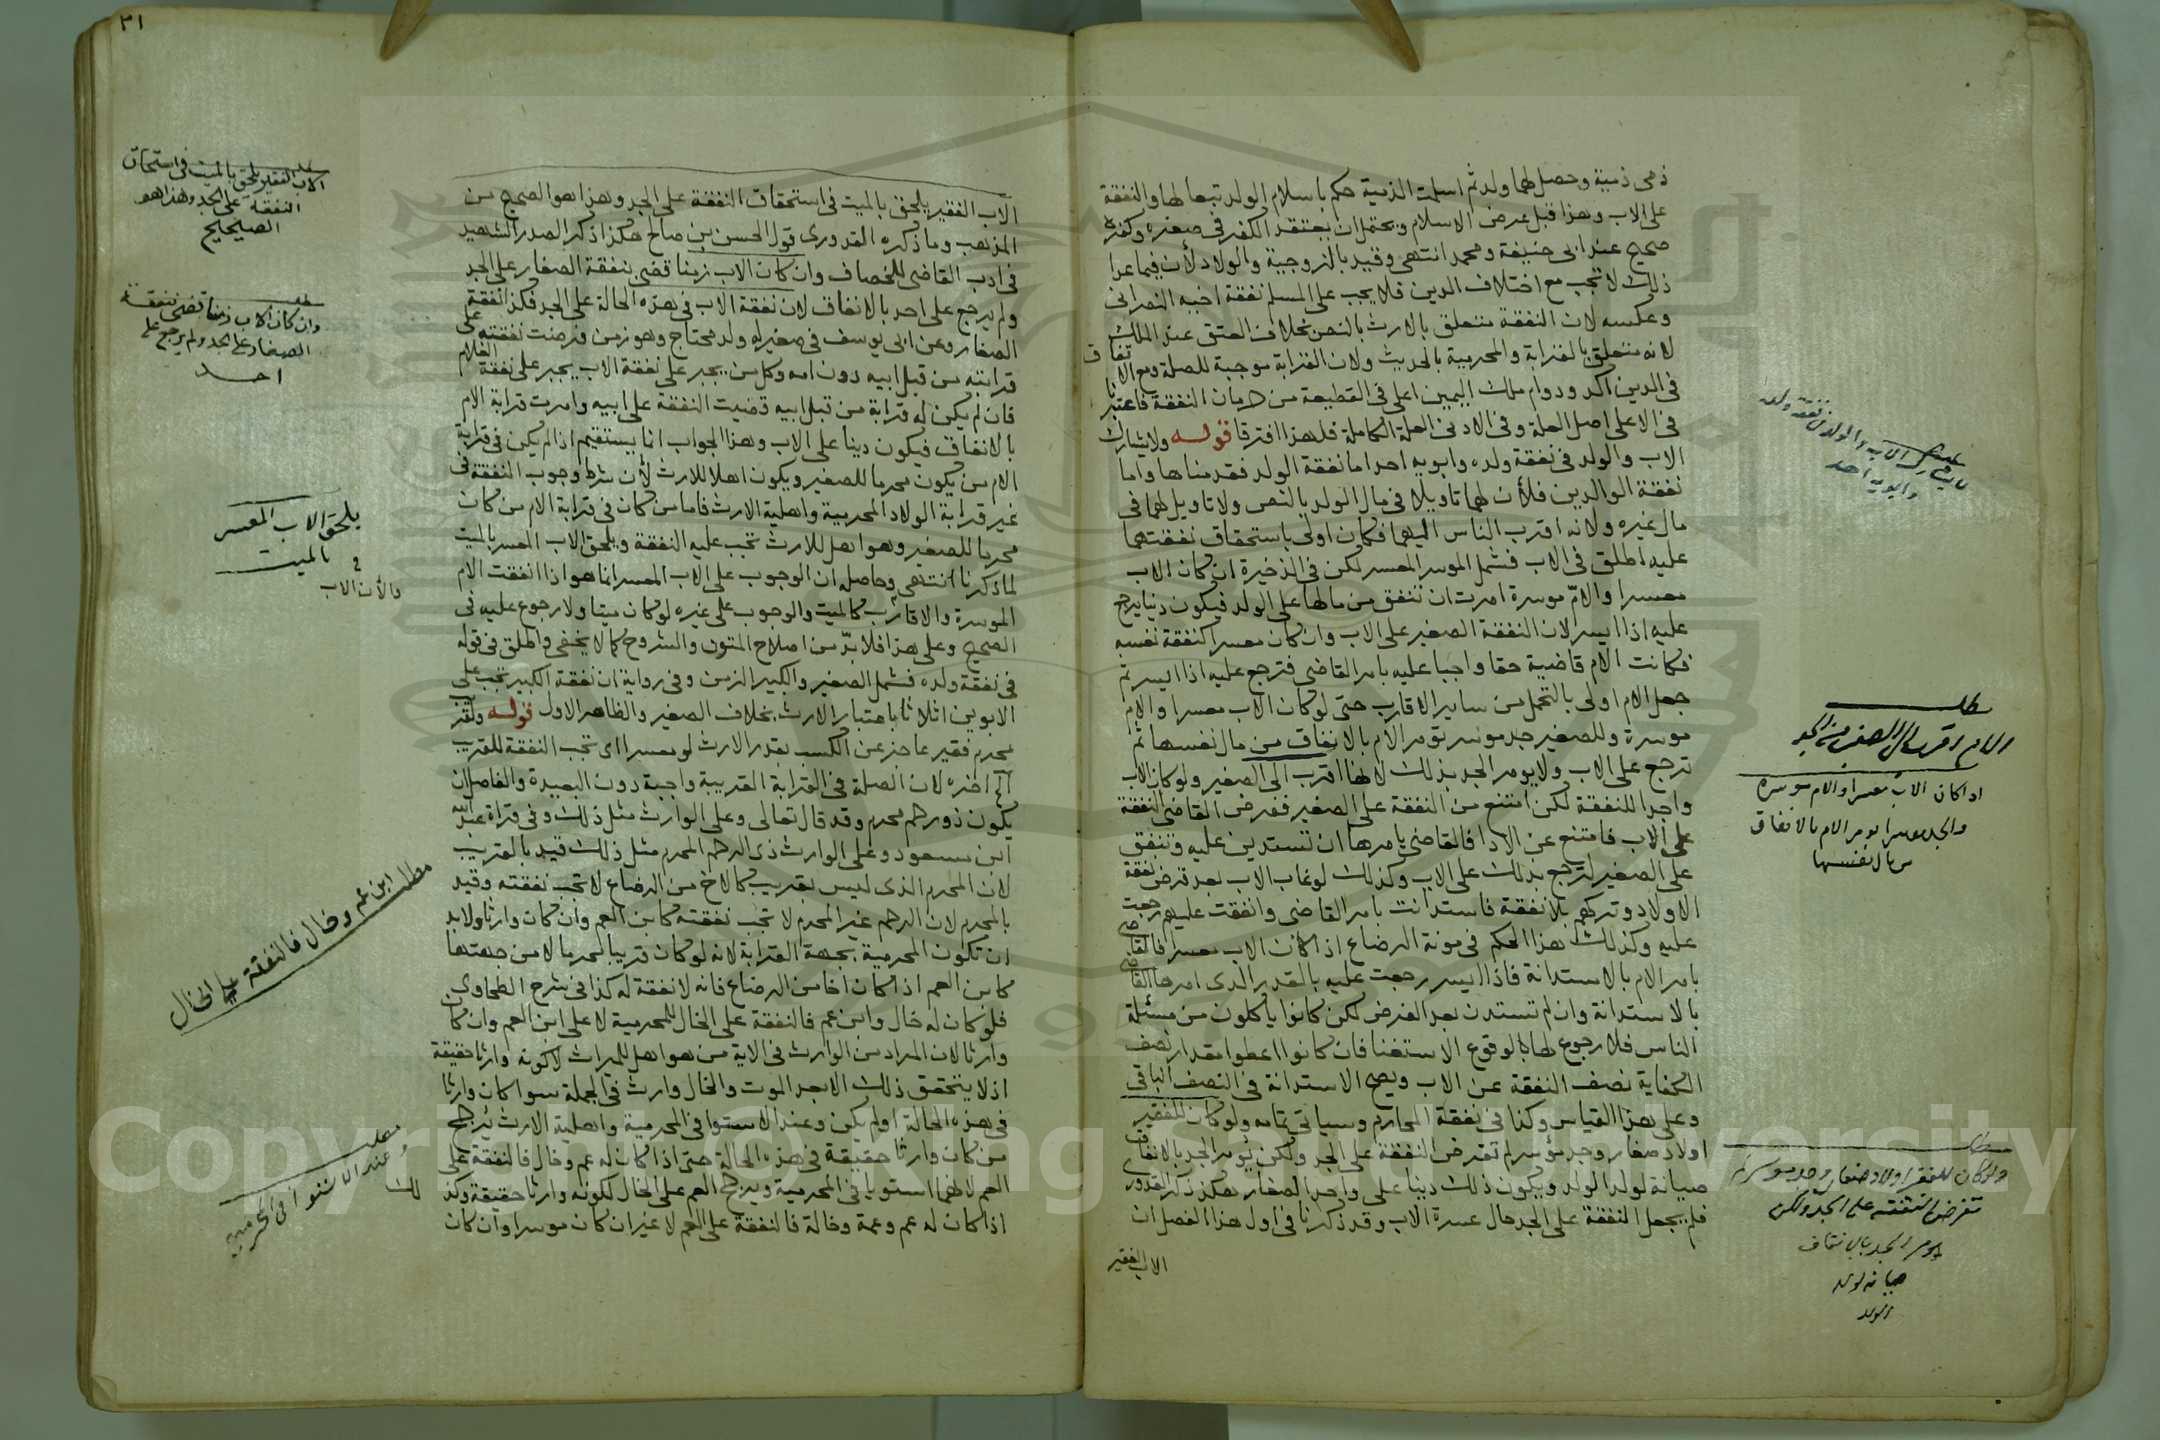 ذمى ذمية وحصل لهما ولد ثم اسلمت الذمية حكم باسلام الولد تبعا لها والنفقة
على الاب وهذا قبل عرض الاسلام ويحتمل ان يعتقد الكفر فى صغره وكفره
صحيح عند ابى حنيفة ومحمد انتهى وقيد بالزوجية والولاد لأن فيما عدا
ذلك لا تجب مع اختلاف الدين فلا يجب على المسلم نفقة اخيه النصرانى
وعكسه لان النفقة متعلق بالارث بالنص بخلاف العتق عند الملك
لانه متعلق بالقرابة والمحرمية بالحديث ولان القرابة موجبة للصلة ومع الاتفاق
فى الدين اكد ودوام ملك اليمين اعلى فى القطيعة من حرمان النفقة فاعتبرنا
فى الاعلى اصل العلة وفى الادنى العلة الكاملة فلهذا افترقا قوله ولا يشارك
الاب والولد فى نفقة ولده وابويه احد اما نفقة الولد فقدمناها واما
نفقة الوالدين فلأن لهما تاويلا فى مال الولد بالنص ولا تاويل لهما فى
مال غيره ولانه اقرب الناس اليهما فكان اولى باستحقاق نفقتهما
عليه اطلق فى الاب فشمل الموسر المعسر لكن فى الذخيرة ان كان الاب
معسرا والامّ موسرة امرت ان تنفق من مالها على الولد فيكون دينا يرجع
عليه اذا ايسر لان النفقة الصغير على الاب وان كان معسرا كنفقة نفسه
فكانت الام قاضية حقا واجبا عليه بامر القاضى فترجع عليه اذا ايسر ثم
جعل الام اولى بالتحمل من ساير الاقارب حتى لو كان الاب معسرا والام
موسرة وللصغير جد موسر تؤمر الام بالانفاق من مال نفسها ثم
ترجع على الاب ولا يومر الجد بذلك لانها اقرب الى الصغير ولو كان الاب
واجدا للنفقة لكن امتنع من النفقة على الصغير ففرض القاضى النفقة
على الاب فامتنع عن الادا فالقاضى يامرها ان تستدين عليه وتنفق
على الصغير لترجع بذلك على الاب وكذلك لو غاب الاب بعد فرض نفقة
الاولاد وتركهم بلا نفقة فاستدانت بامر القاضى وانفقت عليهم رجعت
عليه وكذلك هذا الحكم فى مونة الرضاع اذا كان الاب معسرا فالقاضى
يامر الام بالاستدانة فاذا ايسر رجعت عليه بالقدر الذى امرها القاضى
بالاستدانة وان لم تستدن بعد الفرض لكن كانوا ياكلون من مسئلة
الناس فلا رجوع لها لوقوع الاستغنا فان كانوا اعطوا مقدار نصف
الكفاية نصف النفقة عن الاب ويصح الاستدانة فى النصف الباقى
وعلى هذا القياس وكذا فى نفقة المحارم وسياتى تمامه ولو كان للفقير
اولاد صغار وجد مؤسر لم تفرض النفقة على الجد ولكن يؤمر الجد بالانفاق
صيانة لولد الولد ويكون ذلك دينا على والد الصغار هكذا ذكر القدورى
فلم يجعل النفقة على الجد حال عسرة الاب وقد ذكرنا فى اول هذا الفصل ان
الاب الفقير
لا يشارك الاب والولد فى نفقة ولده
وابويه احد
مطلب
الام اقرب الى الصغير من الجد
اذا كان الاب معسرا والام موسرة
والجد موسرا يومر الام بالانفاق
من مال نفسها
مطلب
ولو كان للفقير اولاد صغار وجد موسر لم
تفرض النفقة على الجد ولكن
يؤمر الجد بالانفاق
صيانة لولد
الولد
٣١
الاب الفقير يلحق بالميت فى استحقاق النفقة على الجد وهذا هو الصحيح من
المذهب وما ذكره القدورى قول الحسن بن صالح هكذا ذكر الصدر الشهيد
فى ادب القاضى للخصاف وان كان الاب زمنا قضى بنفقة الصغار على الجد
ولم يرجع على احد بالانفاق لان نفقة الاب فى هذه الحالة على الجد فكذا نفقة
الصغار وعن ابى يوسف فى صغير له ولد محتاج وهو زمن فرضت نفقته على
قرابته من قبل ابيه دون امه وكل من يجبر على نفقة الاب يجبر على نفقة الغلام
فان لم يكن له قرابة من قبل ابيه قضيت النفقة على ابيه وامرت قرابة الام
بالانفاق فيكون دينا على الاب وهذا الجواب انما يستقيم اذا لم يكن فى قرابة
الام من يكون محرما للصغير ويكون اهلا للارث لأن شرط وجوب النفقة فى
غير قرابة الولاد المحرمية واهلية الارث فاما من كان فى قرابة الام من كان
محرما للصغير وهو اهل للارث تجب عليه النفقة ويلحق الاب المعسر بالميت
لما ذكرنا انتهى وحاصله ان الوجوب على الاب المعسر انما هو اذا انفقت الام
الموسرة والاقارب كالميت والوجوب على غيره لو كان ميتا ولا رجوع عليه فى
الصحيح وعلى هذا فلا بدّ من اصلاح المتون والشروح كما لا يخفى واطلق فى قوله
فى نفقة ولده فشمل الصغير والكبير الزمن وفى رواية ان نفقة الكبير تجب على
الابوين اثلاثا باعتبار الارث بخلاف الصغير والظاهر الاول قوله ولقريب
محرم فقير عاجز عن الكسب بقدر الارث لو معسرا اى تجب النفقة للقريب
الى اخره لان الصلة فى القرابة القريبة واجبة دون البعيدة والفاصل ان
يكون ذو رحم محرم وقد قال تعالى وعلى الوارث مثل ذلك وفى قراة عبد الله
ابن مسعود وعلى الوارث ذى الرحم المحرم مثل ذلك قيد بالقريب
لان المحرم الذى ليس بقريب كالاخ من الرضاع لا تجب نفقته وقيد
بالمحرم لان الرحم غير المحرم لا تجب نفقته كابن العم وان كان وارثا ولا بد
ان تكون المحرمية بجهة القرابة لانه لو كان قريبا محرما لا من جهتها
كابن العم اذا كان اخا من الرضاع فانه لا نفقة له كذا فى شرح الطحاوى
فلو كان له خال وابن عم فالنفقة على الخال للمحرمية لا على ابن العم وان كان
وارثا لان المراد من الوارث فى الاية من هو اهل للميراث لا كونه وارثا حقيقة
اذ لا يتحقق ذلك الا بعد الموت والخال وارث فى الجملة سوا كان وارثا
فى هذه الحالة او لم يكن وعند الاستوا فى المحرمية واهلية الارث يترجح
من كان وارثا حقيقة فى هذه الحالة حتى اذا كان له عم وخال فالنفقة على
العم لانهما استويا فى المحرمية ويترجح العم على الخال لكونه وارثا حقيقة وكذلك
اذا كان له عم وعمة وخالة فالنفقة على العم لا غير ان كان موسرا وان كان
مطلب
الاب الفقير يلحق بالميت فى استحقاق
النفقة على الجد وهذا هو
الصحيح
مطلب
وان كان الاب زمنا قضى بنفقة
الصغار على الجد ولم يرجع على
احد
يلحق الاب المعسر
بالميت
مطلب ابن عم وخال فالنفقة على الخال
مطلب
وعند الاستوا فى المحرمية
Copyright © King Saud University